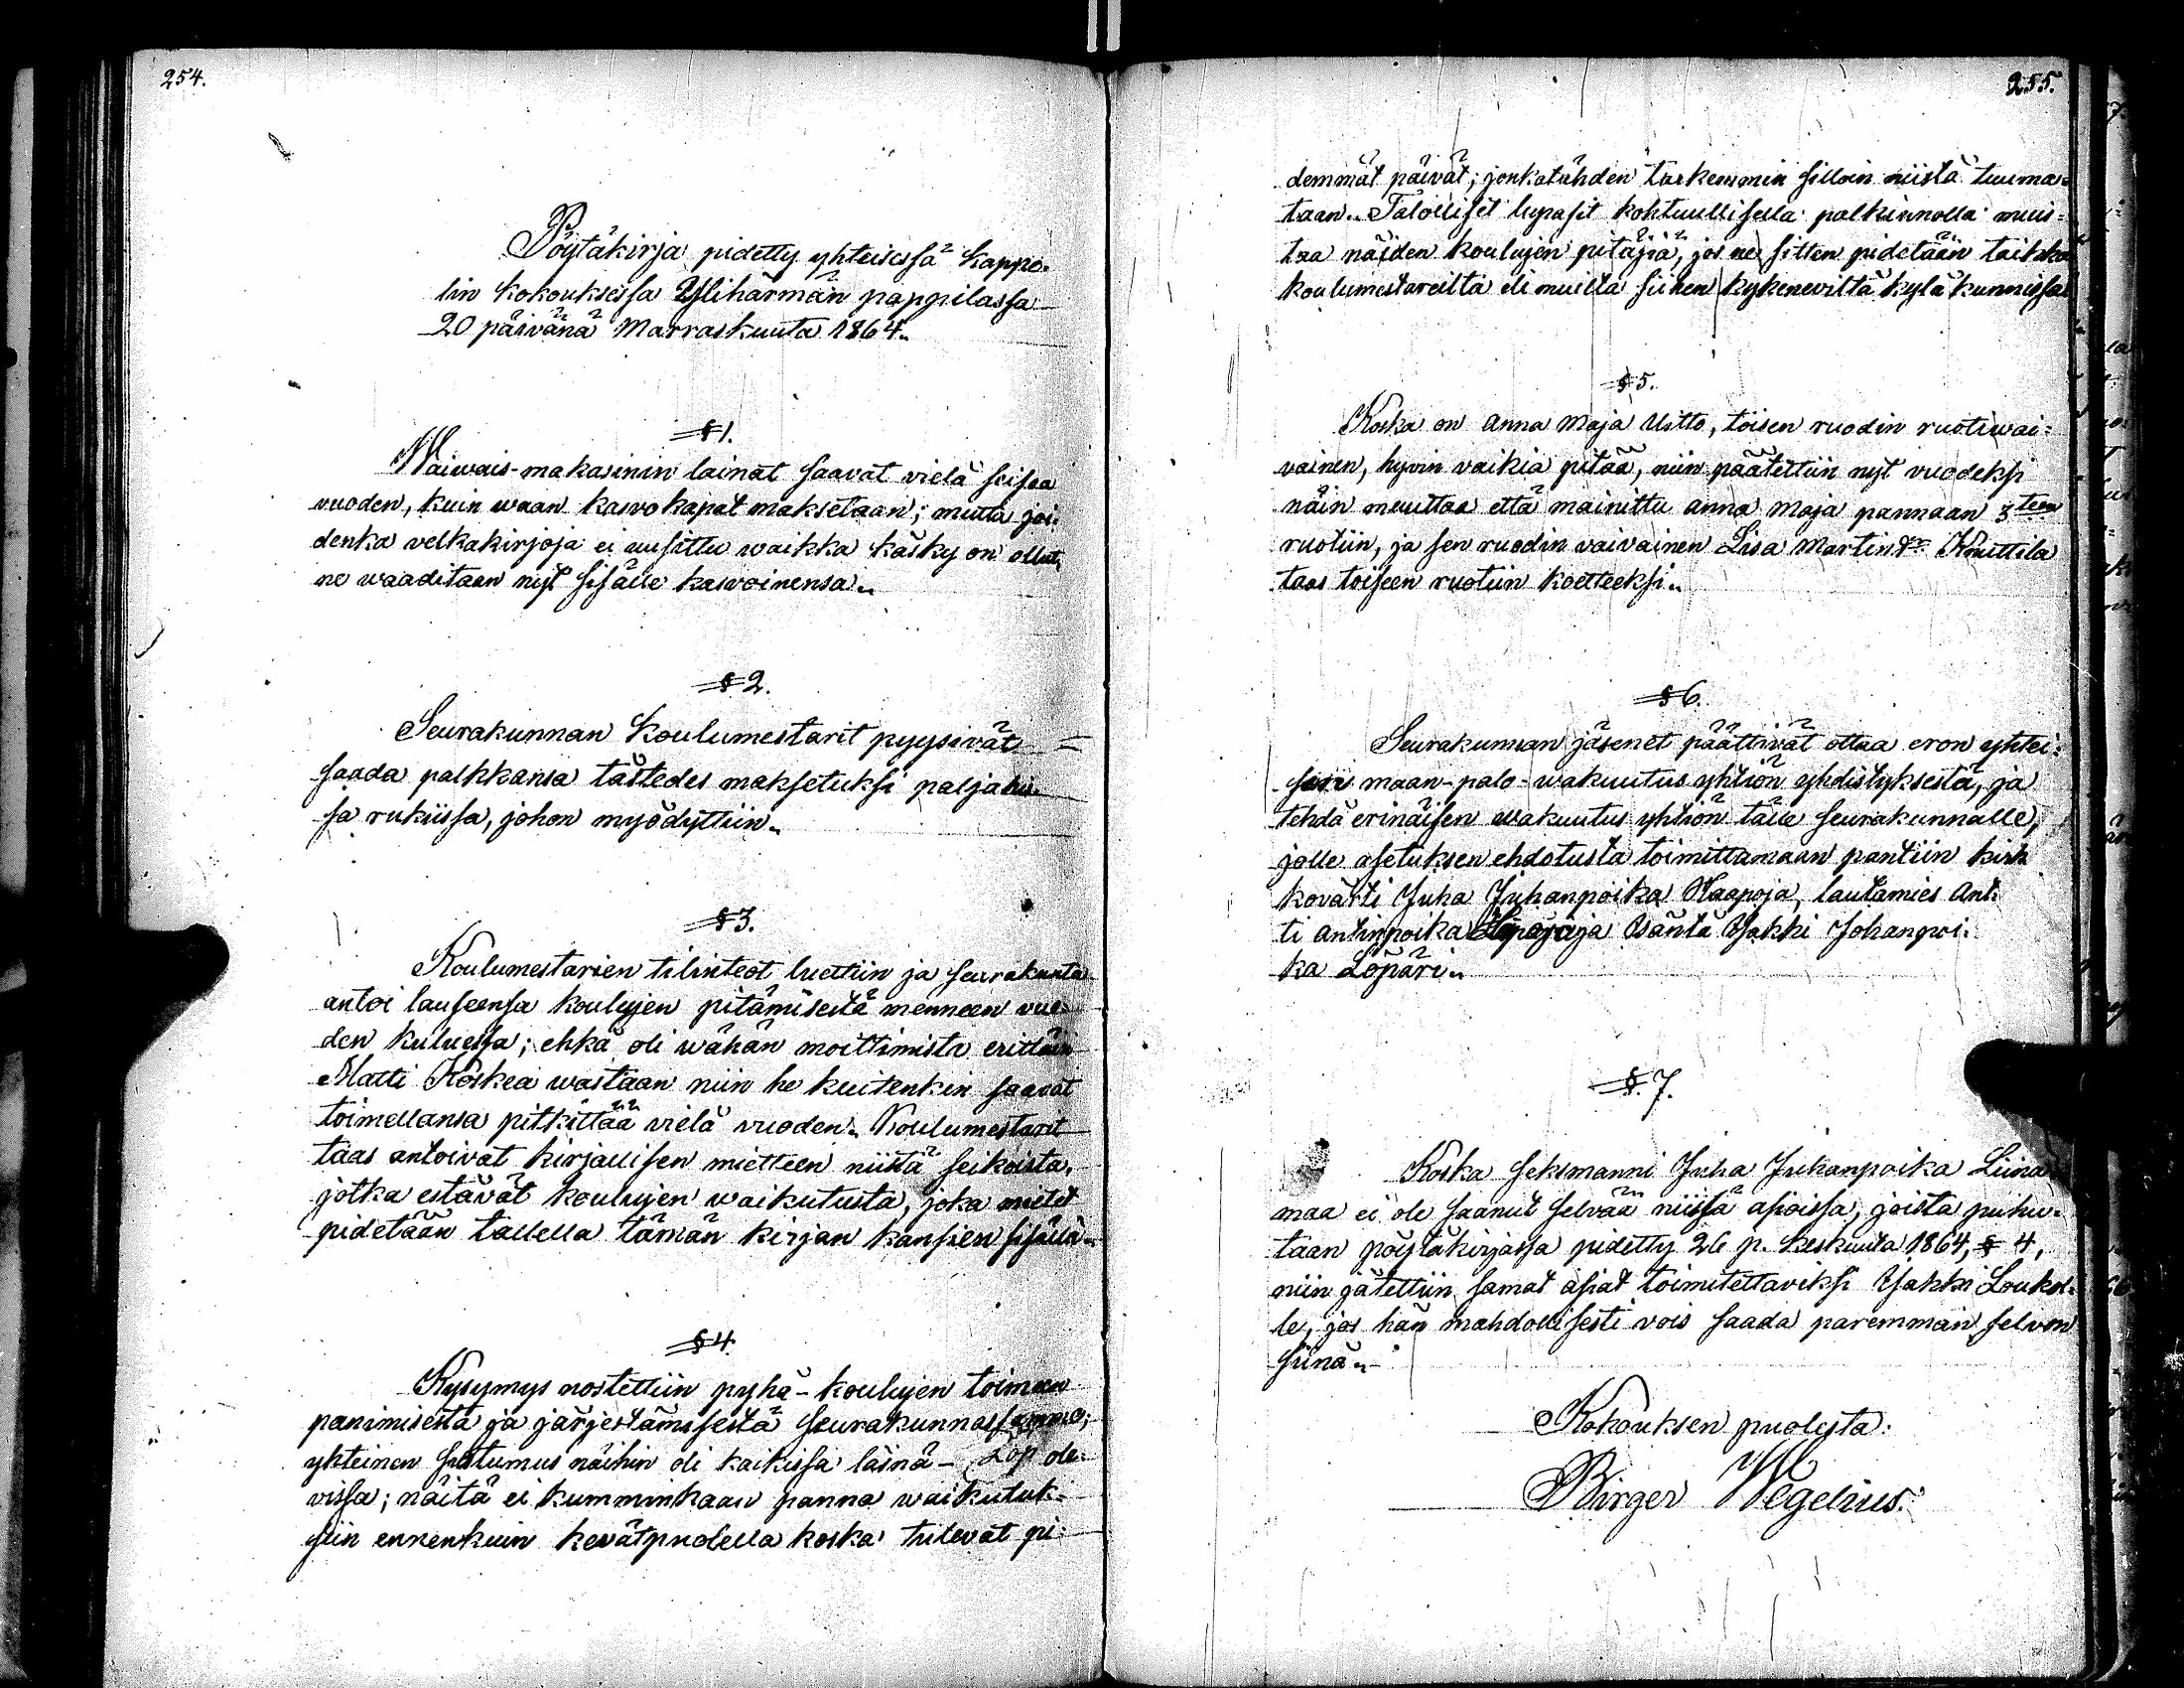 254.
Pöytäkirja pidetty yhteisessä kappe-
lin kokouksessa Ylihärmän pappilassa
20 päivänä Marraskuuta 1864.
§ 1.
Waiwais-makasinin lainat saavat vielä seisoa
vuoden, kuin waan kaswokapat maksetaan; mutta joi-
denka velkakirjoja ei uusittu waikka käsky on ollut,
ne waaditaan nyt sisälle kaswoinensa.
§ 2.
Seurakunnan koulumestarit pyysivät
saada palkkansa tästedes maksetuksi paljahis-
sa rukiissa, johon myödyttiin.
§ 3.
Koulumestarien tilinteot luettiin ja seurakunta
antoi lauseensa koulujen pitämisestä menneen vuo-
den kuluessa; ehkä oli wähän moittimista erittäin
Matti Koskea wastaan niin he kuitenkin saavat
toimellansa pitkittää vielä vuoden. Koulumestarit
taas antoivat kirjallisen mietteen niistä seikoista,
jotka estävät koulujen waikutusta, joka mietet
pidetään tallella tämän kirjan kansien sisällä.
§ 4.
Kysymys nostettiin pyhä-koulujen toimeen
panimisesta ja järjestämisestä seurakunnassamme;
yhteinen suostumus näihin oli kaikissa läsnä- ole-
vissa; näitä ei kumminkaan panna waikutuk-
siin ennenkuin kevätpuolella koska tulevat pi-
255.
demmät päivät; jonkatähden tarkemmin silloin niistä tuuma-
taan. Talolliset lupasit kohtuullisella palkinnolla muis-
taa näiden koulujen pitäjiä, jos ne sitten pidetään taikka
koulumestareilta eli muilta siihen kykeneviltä kyläkunnissa
§ 5.
Koska on Anna Maja Utto, toisen ruodin ruotiwai-
vainen, hyvin vaikia pitää, niin päätettiin nyt vuodeksi
näin muuttaa että mainittu Anna Maja pannaan 3teen
ruotiin, ja sen ruodin vaivainen Lisa Martin dr Knuittila
taas toiseen ruotiin koetteeksi.
§ 6.
Seurakunnan jäsenet päättivät ottaa eron yhtei-
sen maan-palo-wakuutus yhtiön yhdistyksestä, ja
tehdä erinäisen wakuutus yhtiön tälle seurakunnalle,
jolle asetuksen ehdotusta toimittamaan pantiin kirk
kovärti Juha Juhanpoika Haapoja, lautamies Ant-
ti Antinpoika ja Isäntä Jakki Johanpoi-
ka Löpäri.
§. 7.
Koska seksmanni Juha Juhanpoika Liina
maa ei ole saanut selvää niissä asioissa, joista puhu-
taan pöytäkirjassa pidetty 26 p. keskuuta 1864, § 4,
niin jätettiin samat asiat toimitettaviksi Jakki Loukol-
le, jos hän mahdollisesti vois saada paremman selvon
siinä.
Kokouksen puolesta:
Birger Wegelius.